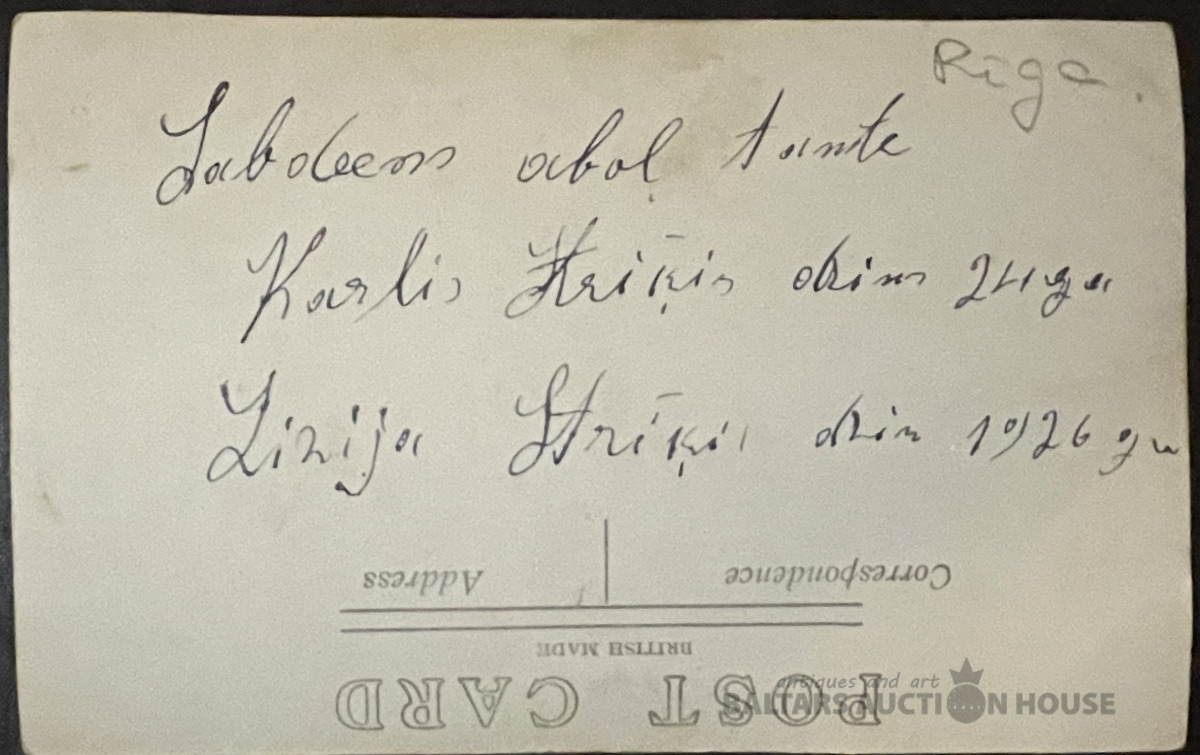 Rīga.
Labdeen aboļ tante
Karlis Strīķis dzim 24 ga
Lizija Strīķis dzim 1926 ga
Correspondence Address
BRITISH MADE
POST CARD
antiques and art
BALTARS AUCTION HOUSE